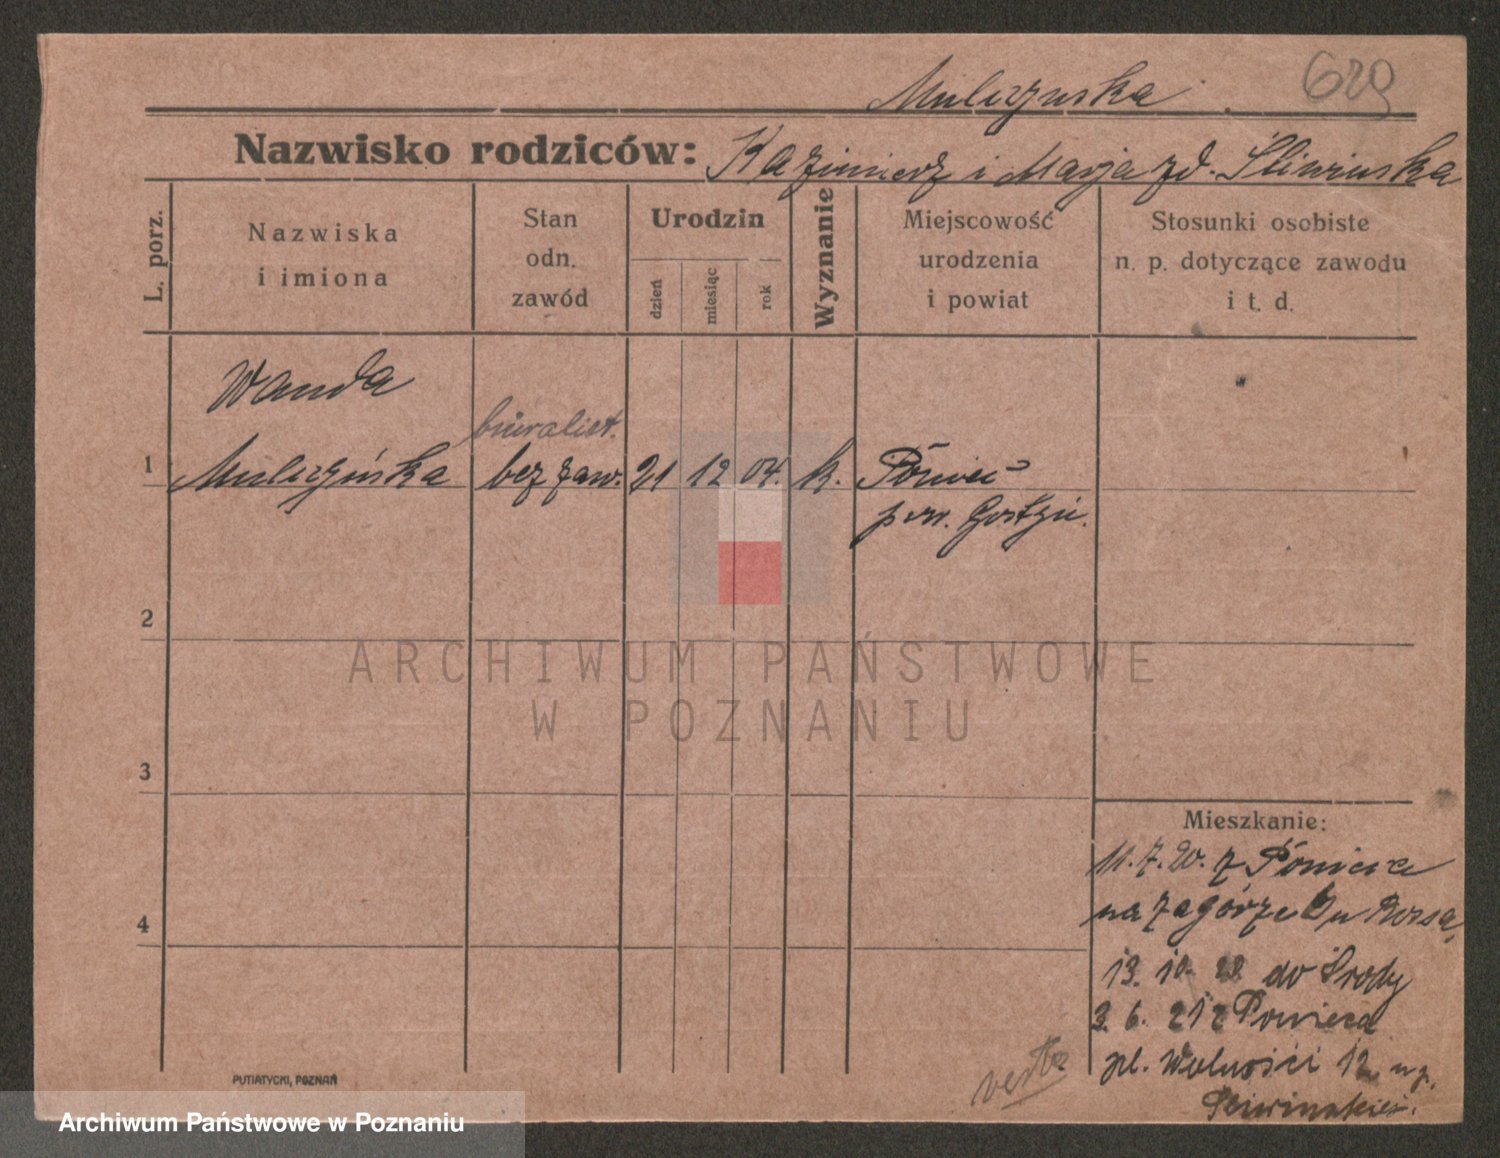 629
Mulczynska
Nazwisko rodziców: Kazimierz i Marja zd. Śliwinska
L. porz.
Nazwiska
i imiona
Stan
odn.
zawód
Urodzin
dzień
miesiąc
rok
Wyznanie
Miejscowość
urodzenia
i powiat
Stosunki osobiste
n. p. dotyczące zawodu
i t. d.
Wanda
biuralist.
1 Mulczyńska bez zaw. 21 12 04. k. Poniec
pow. Gostyń.
2
3
4
ARCHIWUM PAŃSTWOWE
W POZNANIU
Mieszkanie:
11. 7. 20. z Ponieca
na Zagórze
13. 10. 20 do Środy
3. 6. 21 z Ponieca
pl. Wolności 12
verte
PUTIATYCKI, POZNAŃ
Archiwum Państwowe w Poznaniu